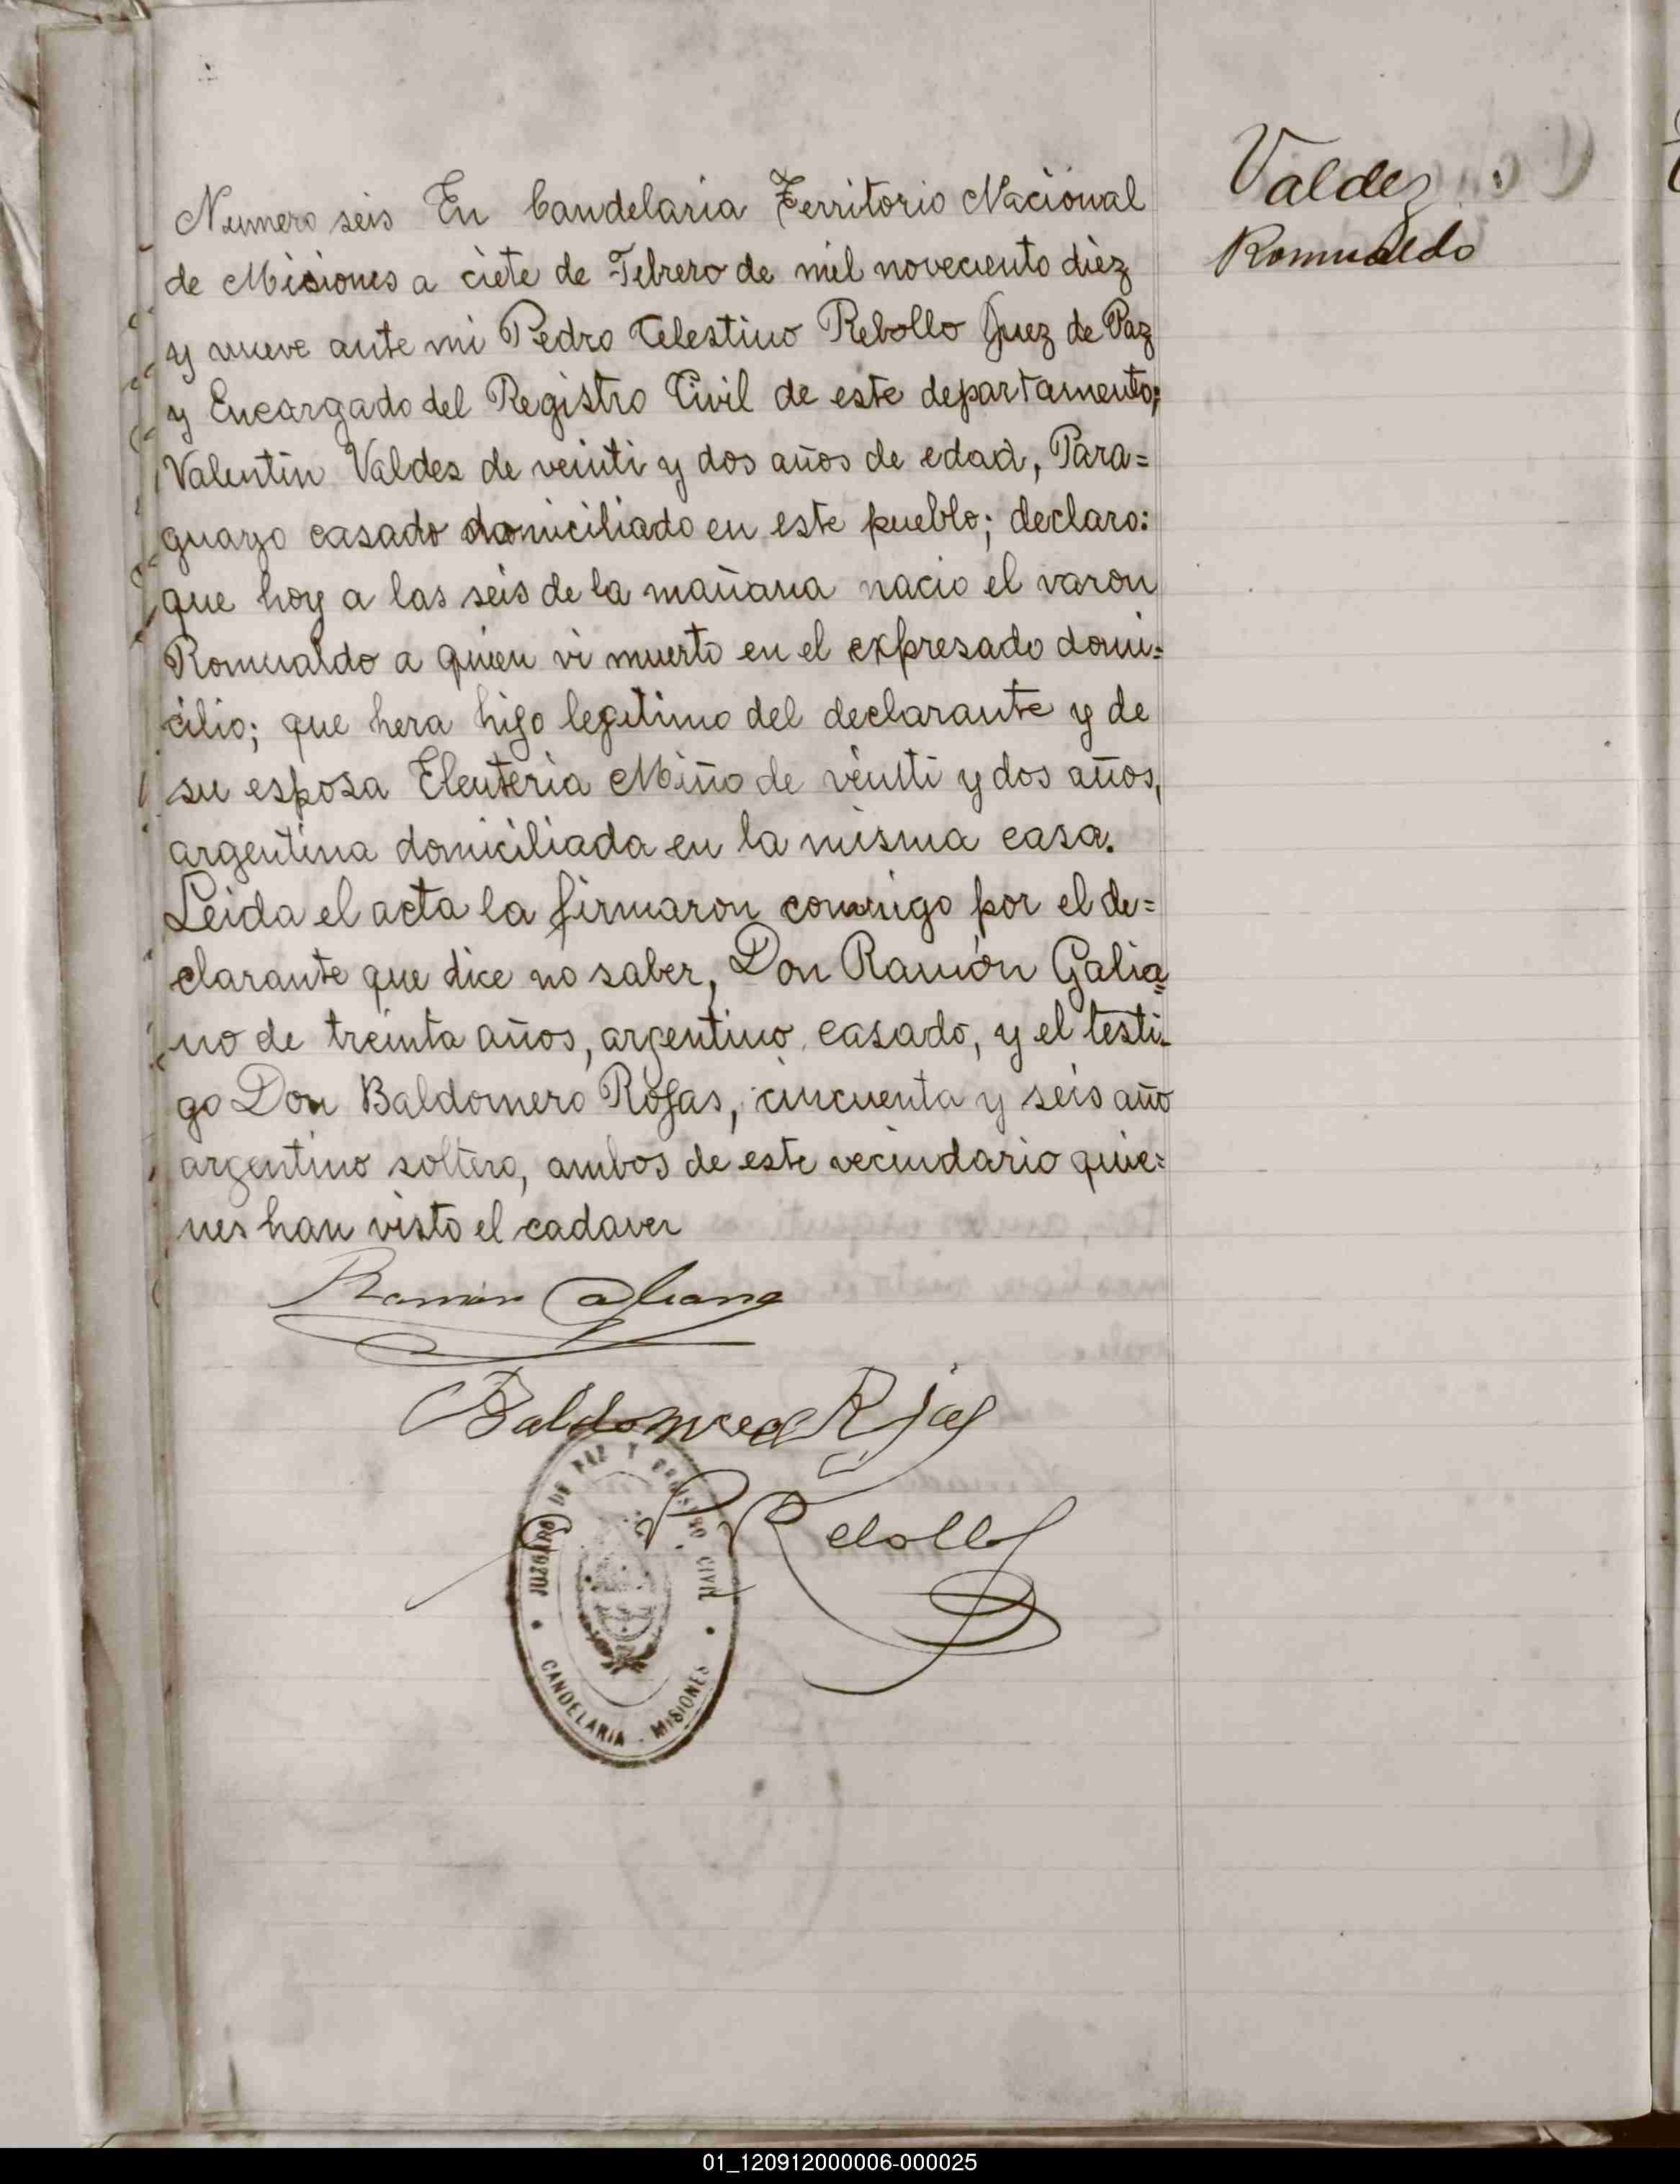 Valdez
Romualdo
Numero seis En Candelaria Territorio Nacional
de Misiones a ciete de Febrero de mil noveciento diez
y nueve ante mi Pedro Celestino Rebollo Juez de Paz
y Encargado del Registro Civil de este departamento;
Valentin Valdez de veinti y dos años de edad, Para=
guayo casado domiciliado en este pueblo; declaro:
que hoy a las seis de la mañana nacio el varon
Romualdo a quien vi muerto en el expresado domi=
cilio; que hera hijo legitimo del declarante y de
su esposa Eleuteria Miño de veinti y dos años,
argentina domiciliada en la misma casa.
Leida el acta la firmaron conmigo por el de=
clarante que dice no saber, Don Ramón Galia=
no de treinta años, argentino casado, y el testi-
go Don Baldomero Rojas, cincuenta y seis año
argentino soltero, ambos de este vecindario quie=
nes han visto el cadaver
Ramón Galiano
Baldomero Rojas
P C Rebollo
JUZGADO DE PAZ Y REGISTRO CIVIL
CANDELARIA - MISIONES
01_120912000006-000025